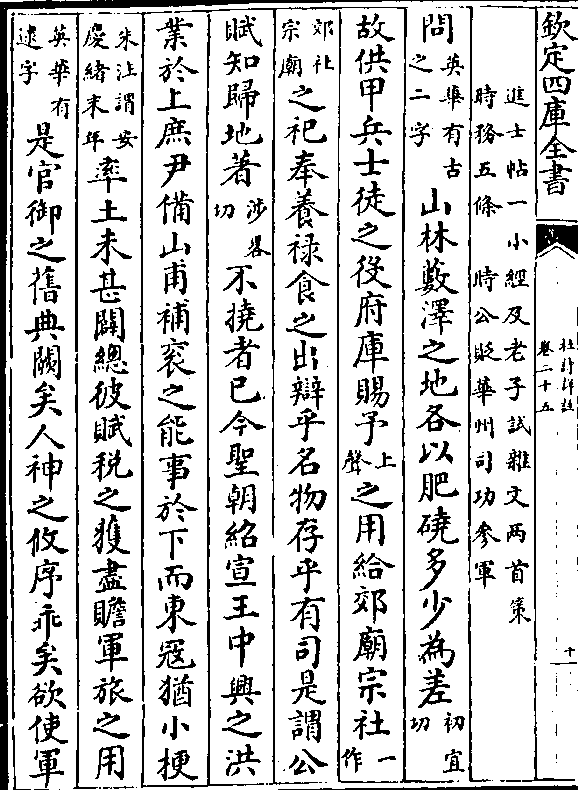 欽定四庫全書
杜詩詳註
卷二十五
十
進士帖一小經及老子試雜文兩首策
時務五條　時公貶華州司功參軍
問英華有古之二字山林藪澤之地各以肥磽多少為差初宜切
故供甲兵士徒之役府庫賜予上聲之用給郊廟宗社一作
郊社宗廟之祀奉養祿食之出辯乎名物存乎有司是謂公
賦知歸地著涉畧切不撓者已今聖朝紹宣王中興之洪
業於上庶尹備山甫補衮之能事於下而東寇猶小梗
朱注謂安慶緒未平率土未甚闢總彼賦稅之獲盡贍軍旅之用
英華有逮字是官御之舊典闕矣人神之攸序乖矣欲使軍